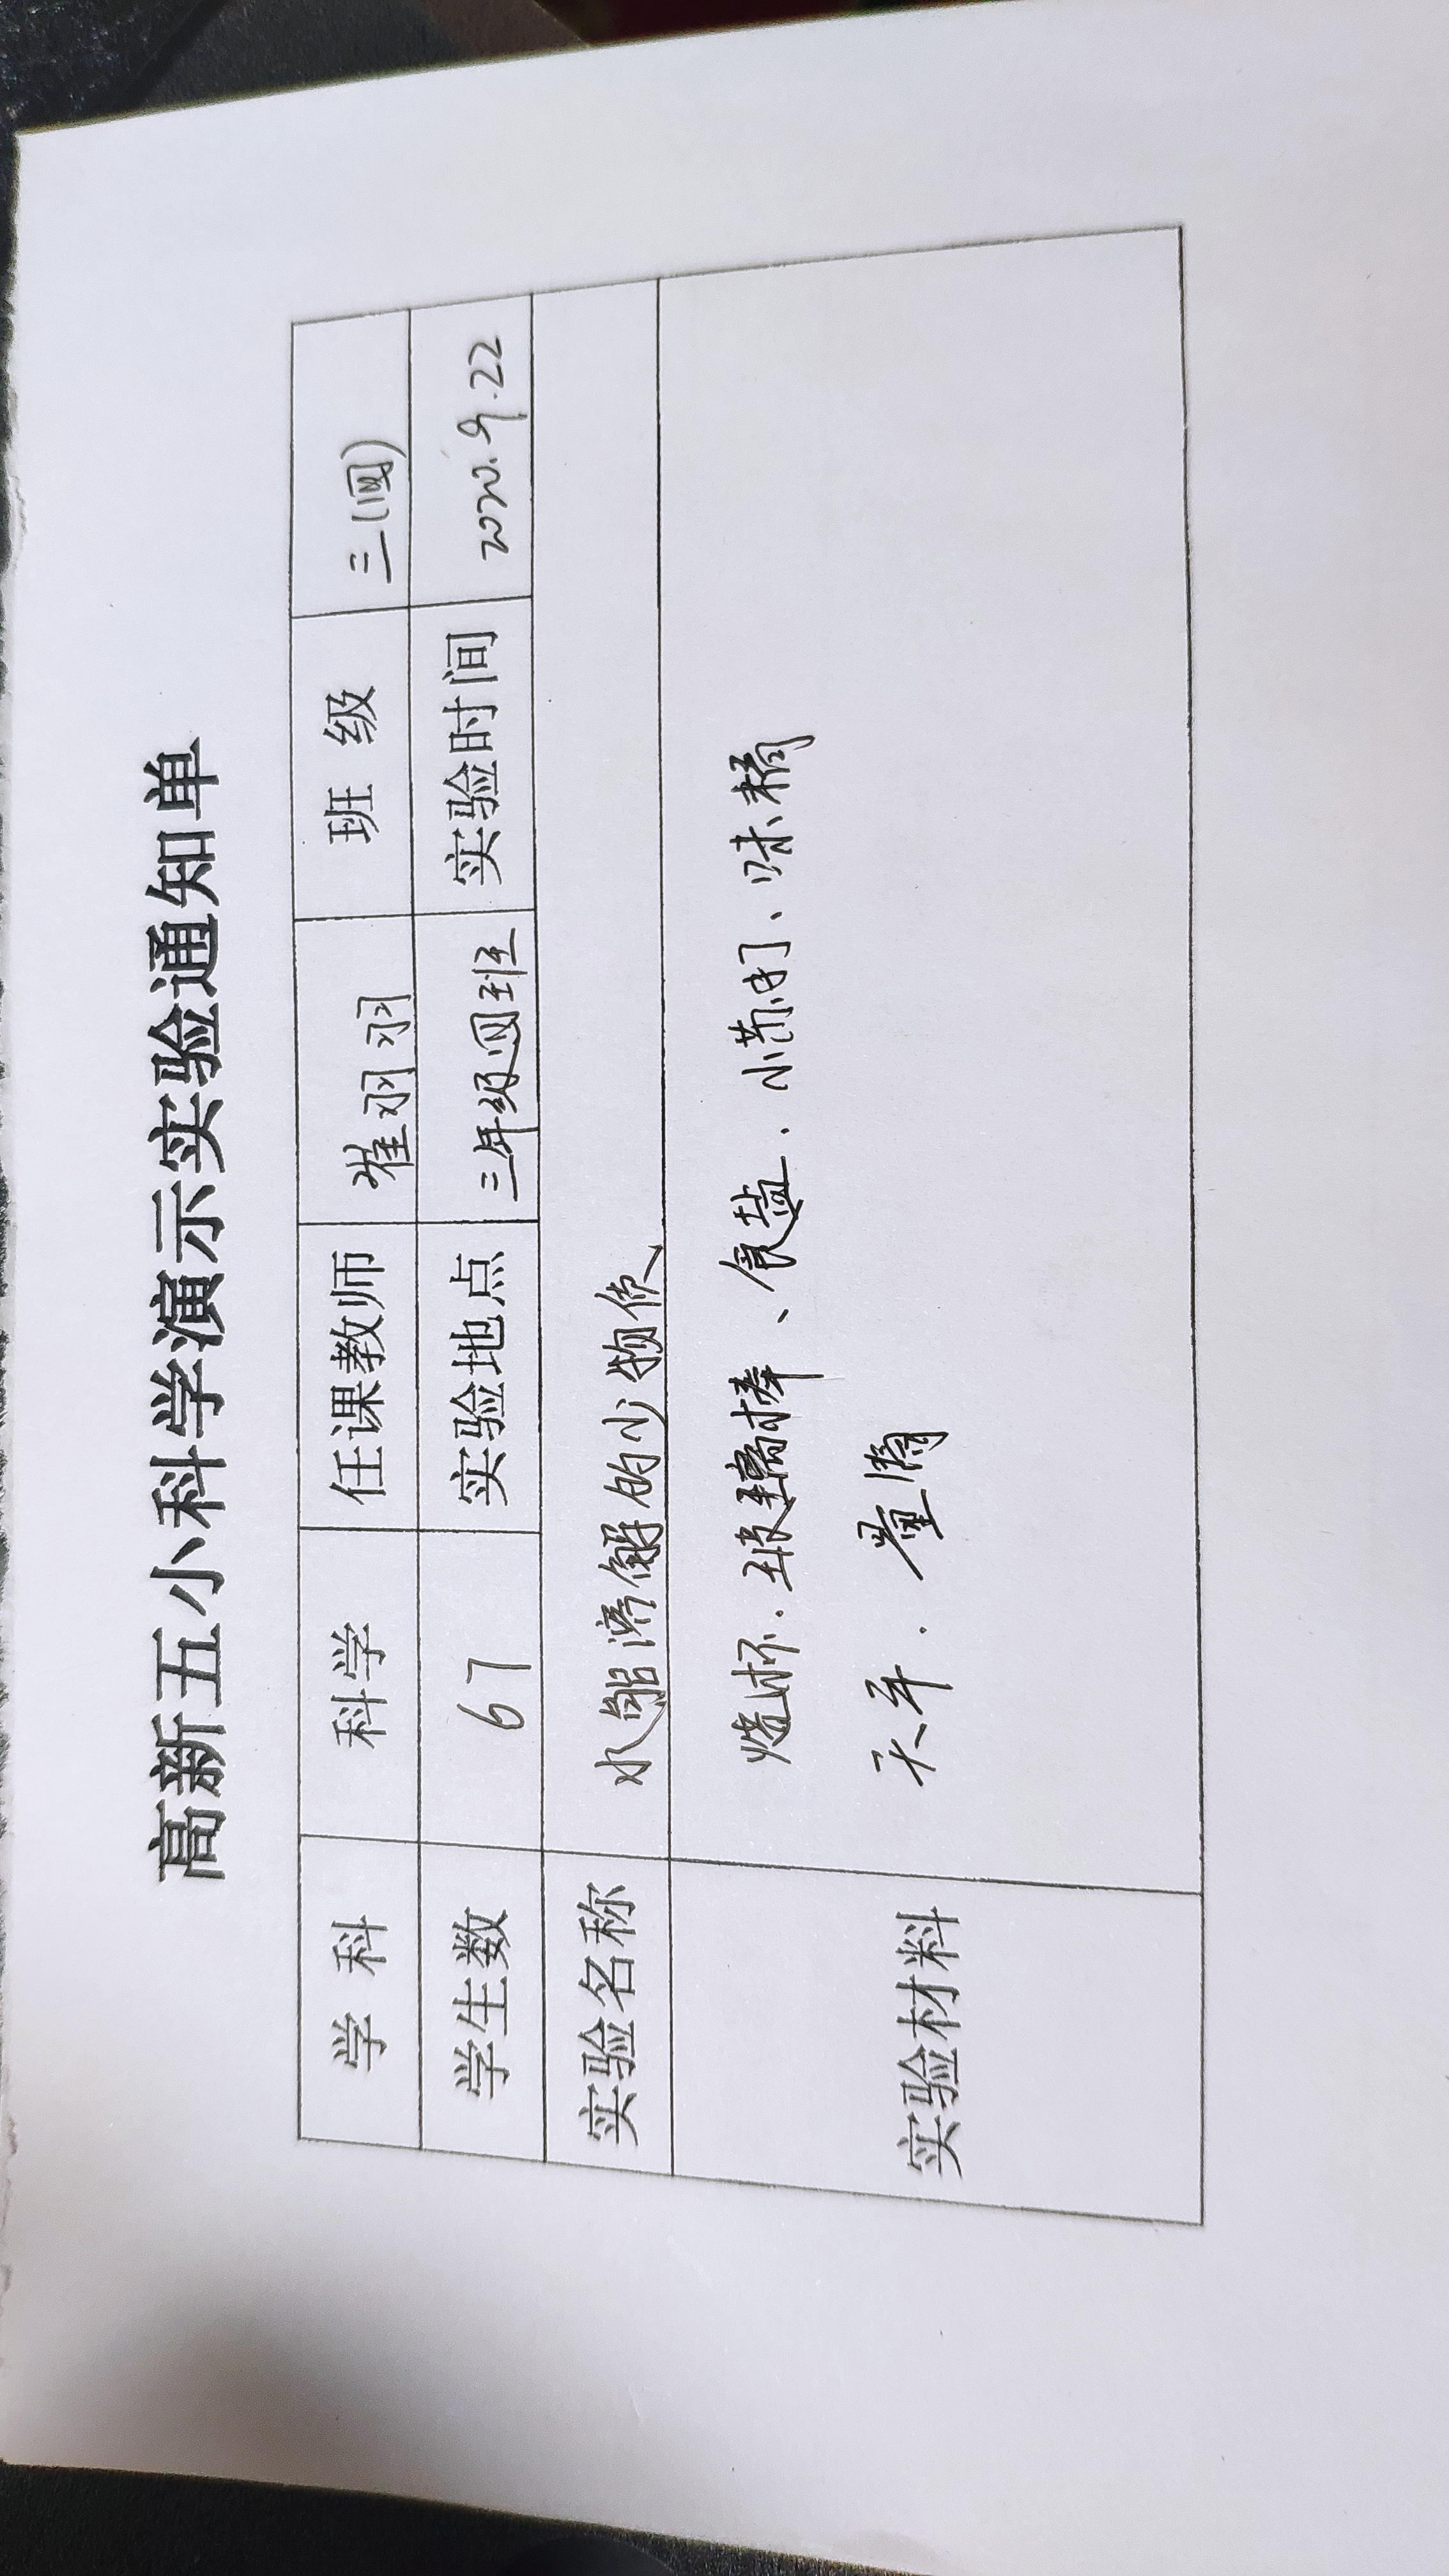 高新五小科学演示实验通知单
学 科 科学 任课教师 崔羽羽 班 级 三(四)
学生数 67 实验地点 三年级四班 实验时间 2020.9.22
实验名称 水能溶解的少物质
实验材料 烧杯、玻璃棒、食盐、小苏打、味精
天平、量筒